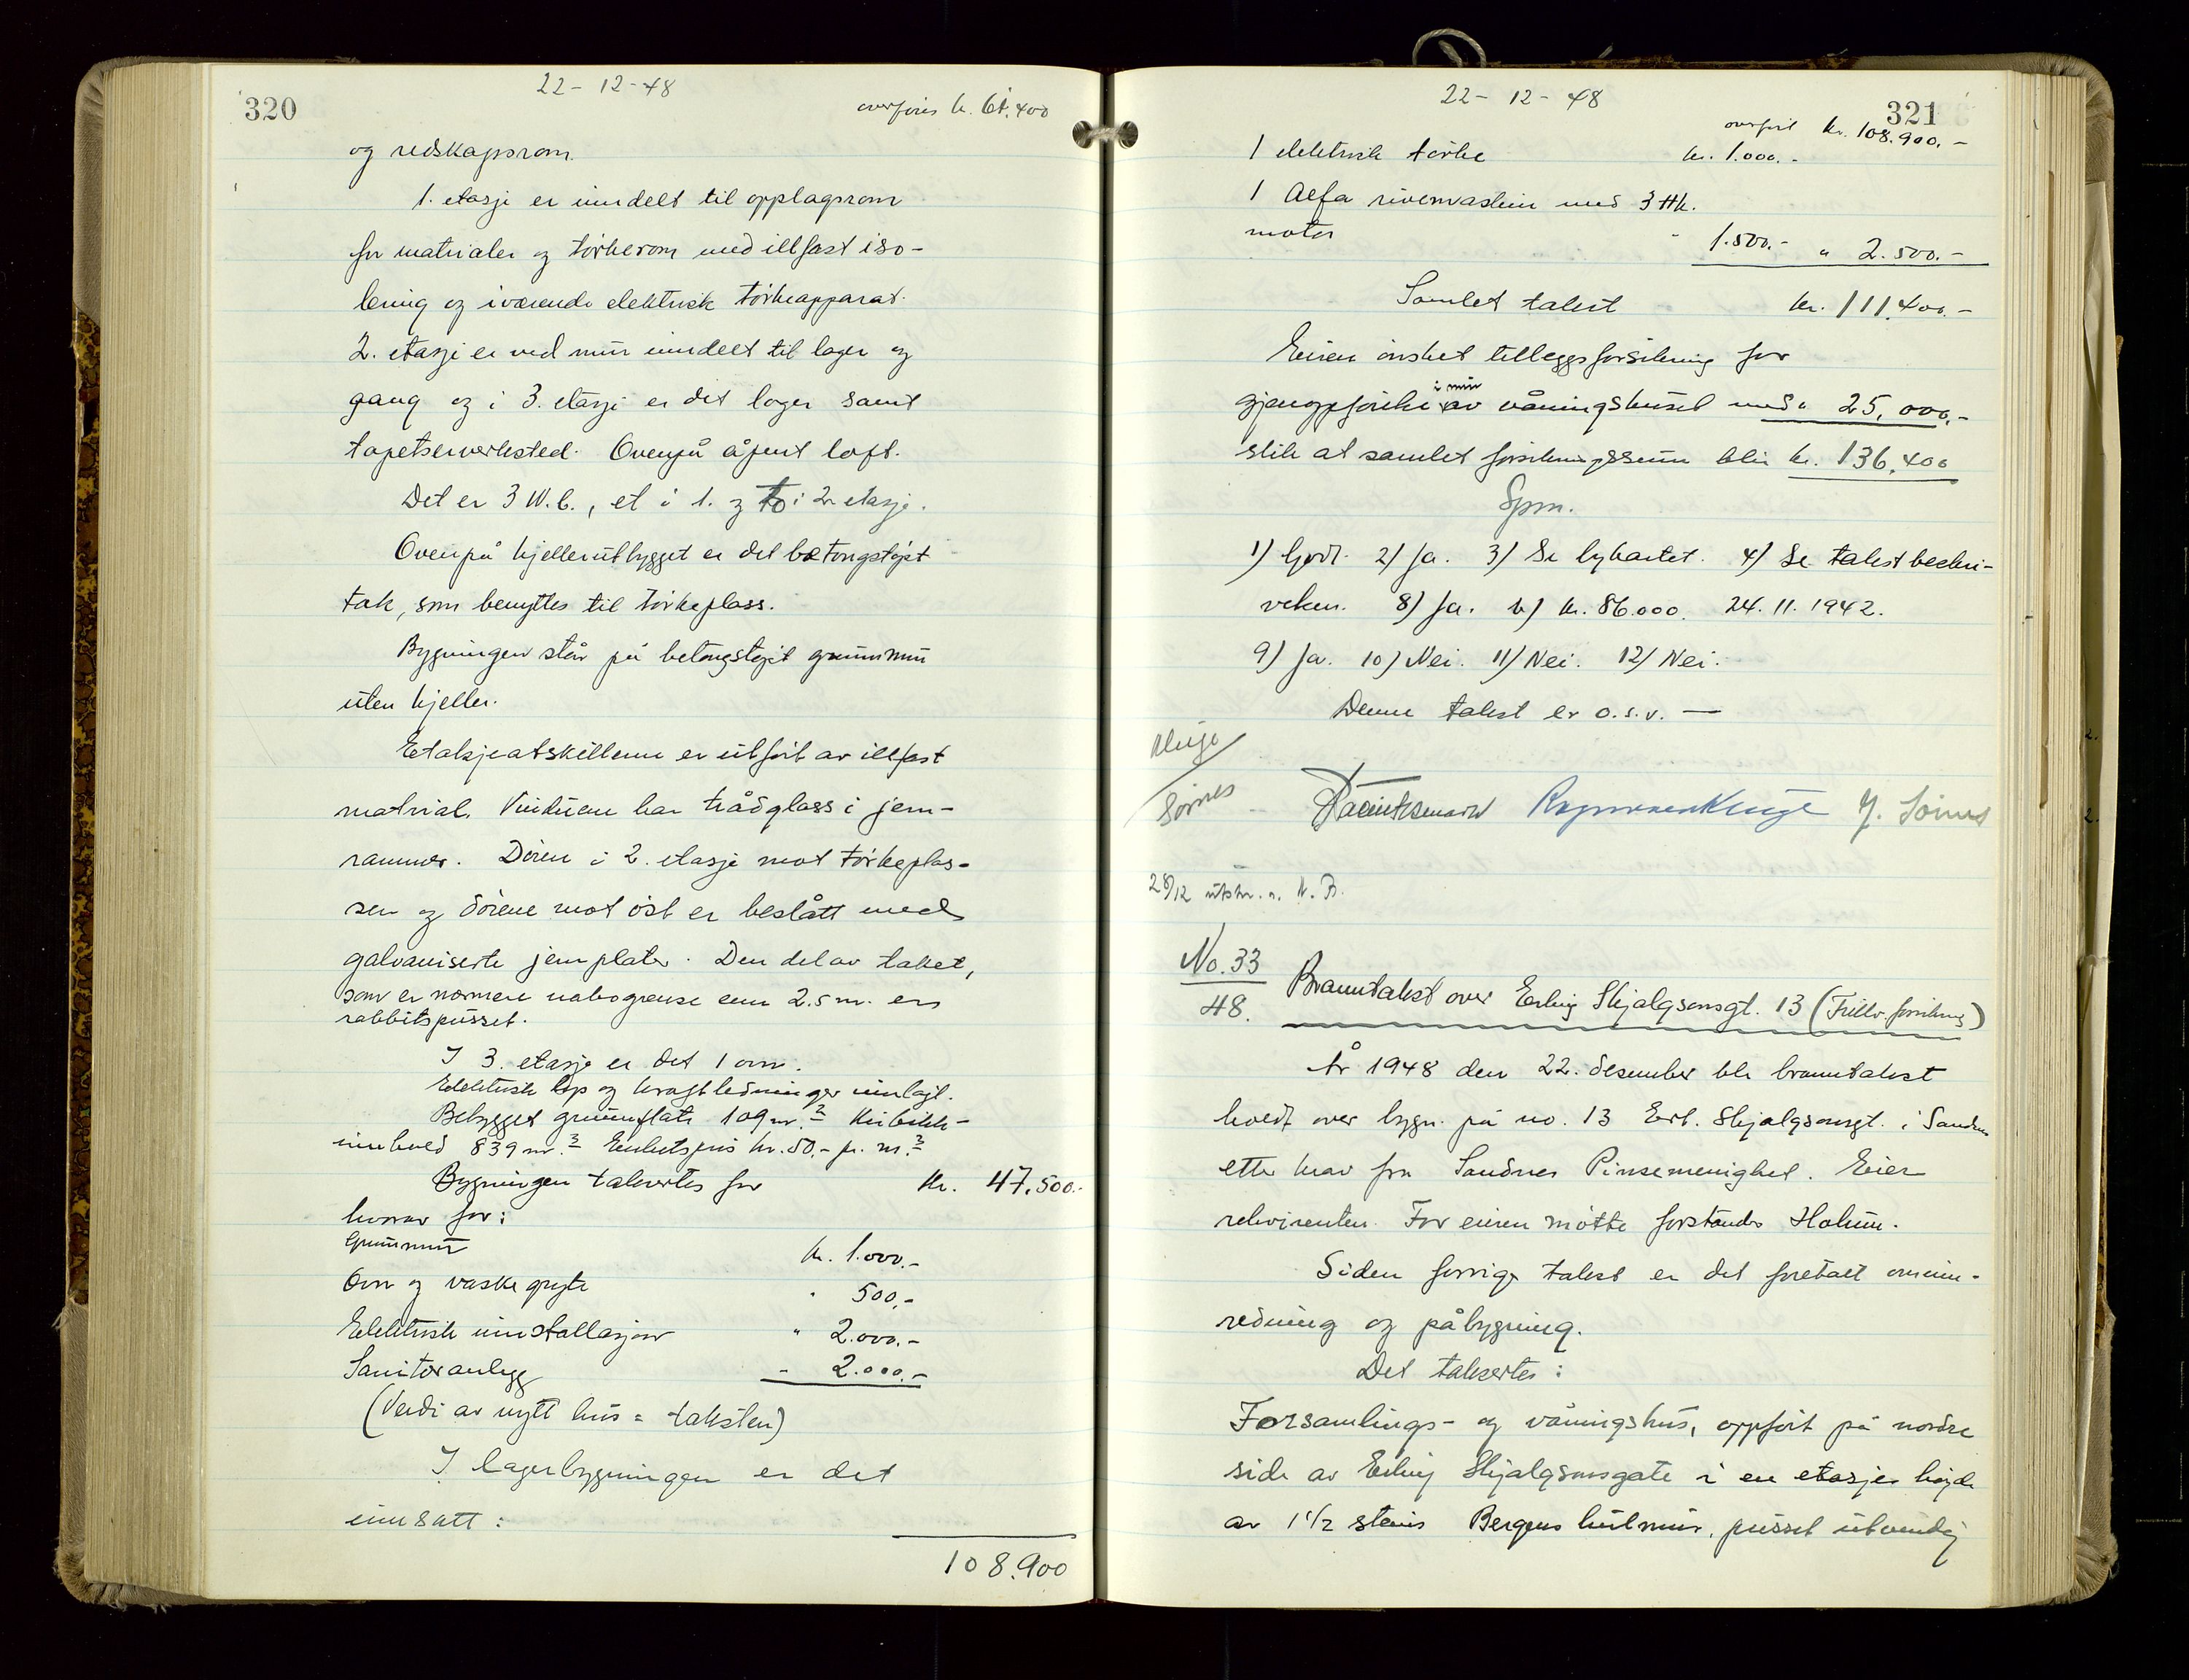 320
22-12-48
overføres kr. 61.400
og redskapsrom.
1. etasje er inndelt til opplagsrom
for matrialer og tørkerom med illfast iso-
lering og iværende elektrisk tørkeapparat.
2. etasje er ved mur inndelt til lager og
gang og i 3. etasje er det lager samt
tapetserverksted. Ovenpå åpent loft.
Det er 3 W.C., et i 1. og to i 2. etasje.
Ovenpå kjellerutbygget er det betongstøpt
tak, som benyttes til tørkeplass.
Bygningen står på betongstøpt grunnmur
uten kjeller.
Etasjeatskillerne er utført av illfast
matrial. Vinduene har trådglass i jern-
rammer. Døren i 2. etasje mot tørkeplas-
sen og dørene mot øst er beslått med
galvaniserte jernplater. Den del av taket,
som er nærmere nabogrense enn 2.5 m. er
rabbitspusset.
I 3. etasje er det 1 ovn.
Elektrisk lys og kraftledninger innlagt.
Bebygget grunnflate 109 m.² Kubikk-
innhold 839 m.³ Enhetspris kr. 50.- pr. m.³
Bygningen takseres for kr. 47.500.-
hvorav for:
Grunnmur kr. 1.000.-
Ovn og vaskegryte " 500.-
Elektrisk innstallasjon " 2.000.-
Sanitæranlegg " 2.000.-
(Verdi av nytt hus = taksten)
I lagerbygningen er det
innsatt:
108.900
22-12-48
321
overført kr. 108.900.-
1 elektrisk tørke kr. 1.000.-
1 Alfa rivemaskin med 3 Hk.
motor " 1.500.- " 2.500.-
Samlet takst kr. 111.400.-
Eieren ønsket tilleggsforsikring for
i mur
gjenoppførelse av våningshuset med " 25.000.-
slik at samlet forsikringssum blir kr. 136.400
Spm.
1) Godt. 2) Ja. 3) Se bykartet. 4) Se takstbeskri-
velsen. 8) Ja. b) kr. 86.000. 24.11.1942.
9) Ja. 10) Nei. 11) Nei. 12) Nei.
Denne takst er o.s.v. —
Kluge
Sørnes
Ragnvald Kluge J. Sørnes
28/12 utskr. s. N. B.
No. 33
48.
Branntakst over Erling Skjalgsonsgt. 13 (Frillv. forsikring)
År 1948 den 22. desember ble branntakst
holdt over bygn. på no. 13 Erl. Skjalgsonsgt. i Sandnes
etter krav fra Sandnes Pinsemenighet. Eier
rekvirenten. For eieren møtte forstander Holum.
Siden forrige takst er det foretatt ominn-
redning og påbygning.
Det takseres:
Forsamlings- og våningshus, oppført på nordre
side av Erling Skjalgsonsgate i en etasjes høyde
av 1 1/2 steins Bergens hulmur, pusset utvendig